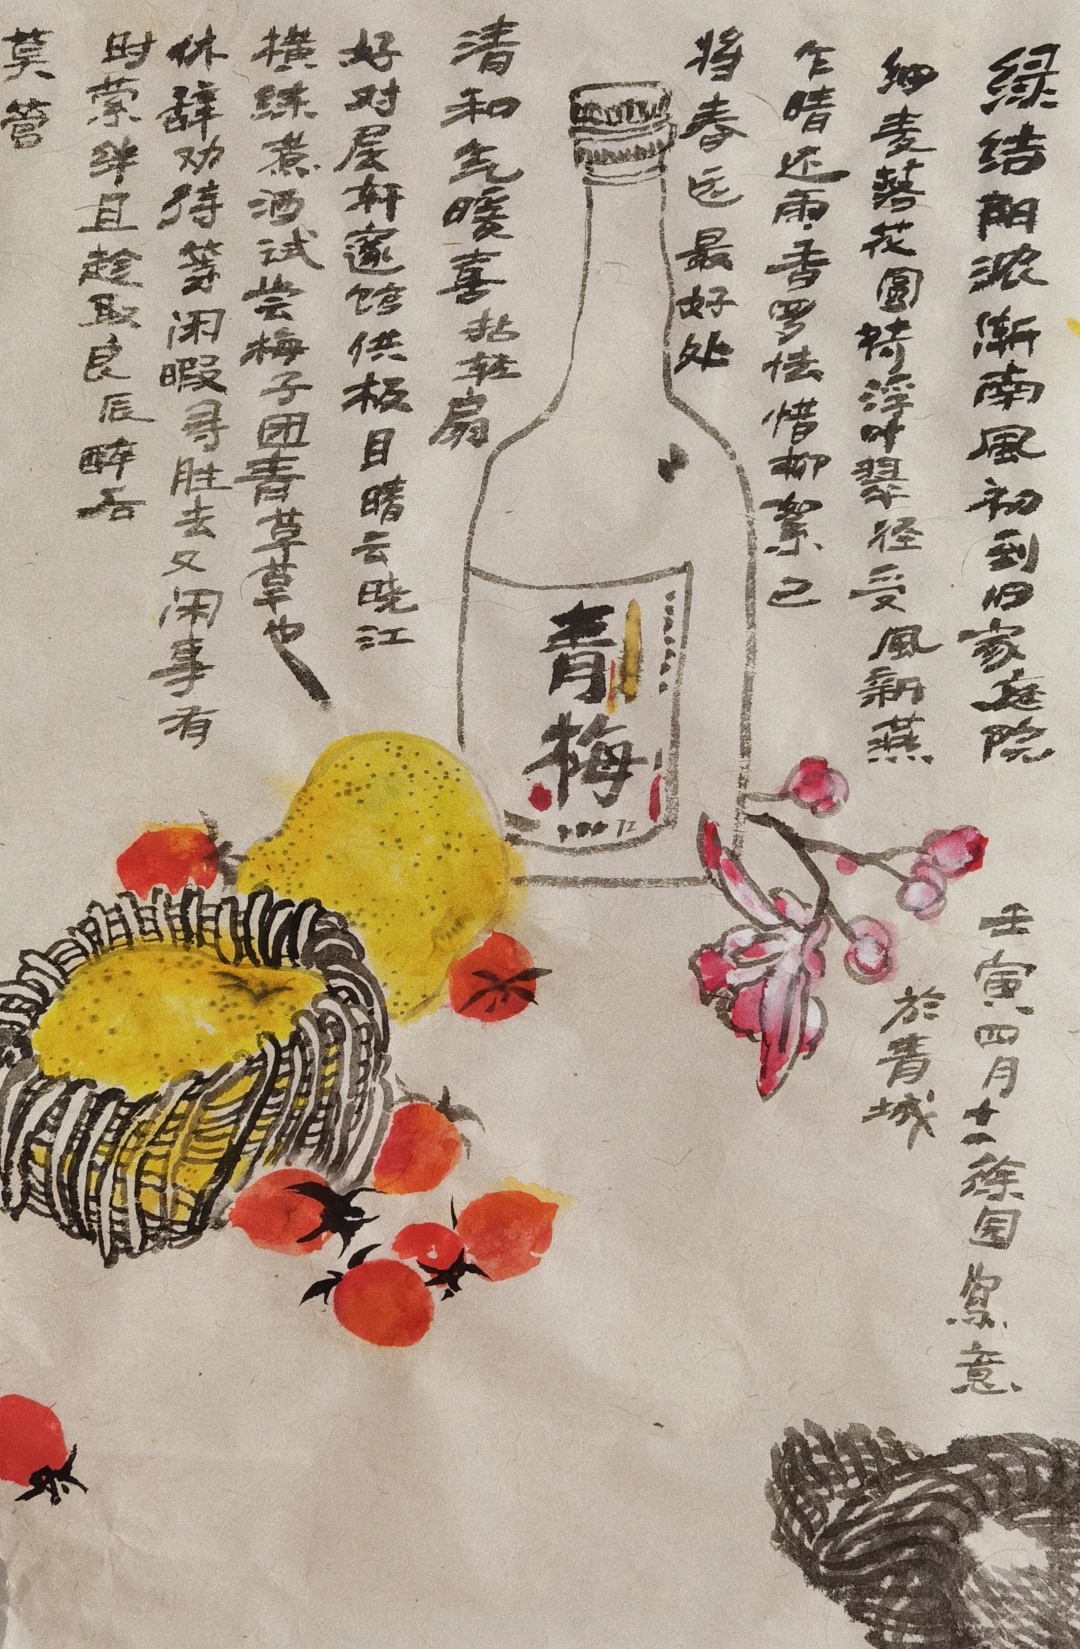 绿结阴浓渐南風初到旧家庭院
细麦落花圓荷浮叶翠径受風新燕
乍晴还雨香罗怯惜柳絮已
将春远最好处
清和气暖喜拈轻扇
好对层轩邃馆供极目晴云晓江
横练煮酒试尝梅子团青草草也
休辞劝待等闲暇寻胜去又闲事有
时萦绊且趁取良辰醉后
莫管
青梅
壬寅四月十二徐园寫意
於青城